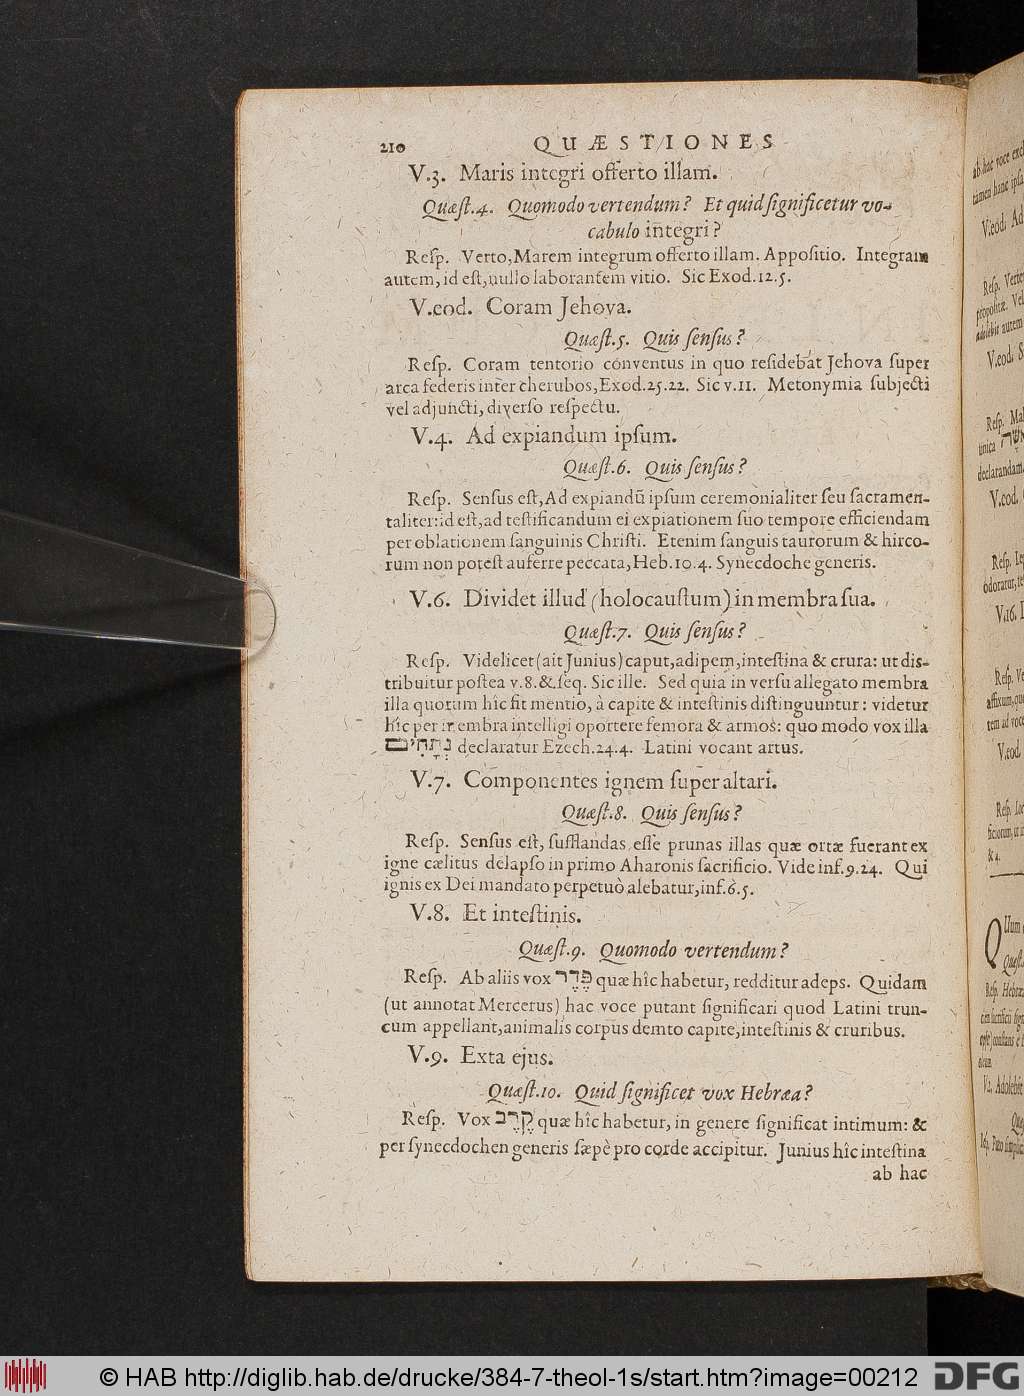 210 QUÆSTIONES
V.3. Maris integri offerto illam.
Quæſt.4. Quomodo vertendum? Et quid ſignificetur vo-
cabulo integri?
Reſp. Verto, Marem integrum offerto illam. Appoſitio. Integram
autem, id eſt, nullo laborantem vitio. Sic Exod.12.5.
V.eod. Coram Jehova.
Quæſt.5. Quis ſenſus?
Reſp. Coram tentorio conventus in quo reſidebat Jehova ſuper
arca federis inter cherubos, Exod.25.22. Sic v.11. Metonymia ſubjecti
vel adjuncti, diverſo reſpectu.
V.4. Ad expiandum ipſum.
Quæſt.6. Quis ſenſus?
Reſp. Senſus eſt, Ad expiandũ ipſum ceremonialiter ſeu ſacramen-
taliter: id eſt, ad teſtificandum ei expiationem ſuo tempore efficiendam
per oblationem ſanguinis Chriſti. Etenim ſanguis taurorum & hirco-
rum non poteſt auferre peccata, Heb.10.4. Synecdoche generis.
V.6. Dividet illud (holocauſtum) in membra ſua.
Quæſt.7. Quis ſenſus?
Reſp. Videlicet (ait Junius) caput, adipem, inteſtina & crura: ut dis-
tribuitur poſtea v.8.&.ſeq. Sic ille. Sed quia in verſu allegato membra
illa quorum hîc fit mentio, à capite & inteſtinis diſtinguuntur: videtur
hîc per membra intelligi oportere femora & armos: quo modo vox illa
נְתָחִים declaratur Ezech.24.4. Latini vocant artus.
V.7. Componentes ignem ſuper altari.
Quæſt.8. Quis ſenſus?
Reſp. Senſus eſt, ſufflandas eſſe prunas illas quæ ortæ fuerant ex
igne cælitus delapſo in primo Aharonis ſacrificio. Vide inf.9.24. Qui
ignis ex Dei mandato perpetuò alebatur, inf.6.5.
V.8. Et inteſtinis.
Quæſt.9. Quomodo vertendum?
Reſp. Ab aliis vox פֶּדֶר quæ hîc habetur, redditur adeps. Quidam
(ut annotat Mercerus) hac voce putant ſignificari quod Latini trun-
cum appellant, animalis corpus demto capite, inteſtinis & cruribus.
V.9. Exta ejus.
Quæſt.10. Quid ſignificet vox Hebræa?
Reſp. Vox קֶרֶב quæ hîc habetur, in genere ſignificat intimum: &
per ſynecdochen generis ſæpè pro corde accipitur. Junius hîc inteſtina
ab hac
© HAB http://diglib.hab.de/drucke/384-7-theol-1s/start.htm?image=00212
DFG